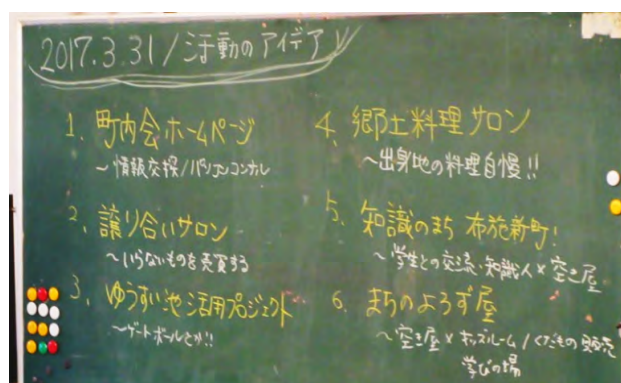 2017.3.31/活動のアイデア
1、町内会ホームページ
～情報交換/パソコンコンサル
2、譲り合いサロン
～いらないものを売買する
3、ゆうすい池活用プロジェクト
～ゲートボールとか!!
4、郷土料理サロン
～出身地の料理自慢!!
5、知識のまち 布施新町!
～学生との交流・知識人×空き屋
6、まちのよろず屋
～空き屋×キッズルーム/くだもの販売
学びの場